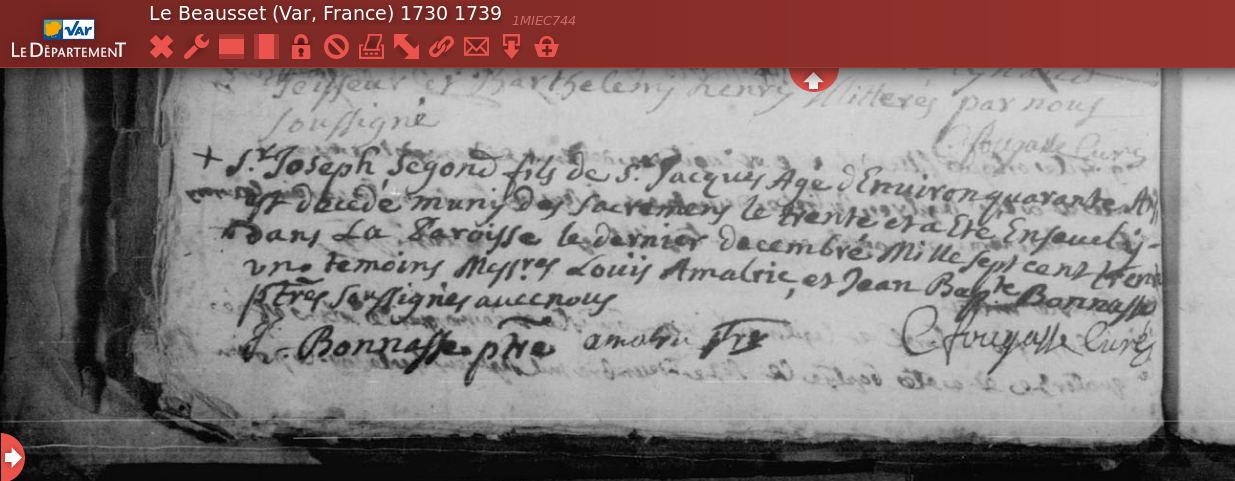 Le Beausset (Var, France) 1730 1739
1MIEC744
VAR
LE DÉPARTEMENT
Barthelemy henry Mitterés par nous
Soussigné
C. fougasse Curé
+ Sr. Joseph Segond fils de Sr. Jacques Agé d'Environ quarante
est decedé muny des Sacremens le trente et a Eté Enseuely
dans La Paroisse le dernier decembre Mille sept cent trente
un. temoins Messres Louis Amalric, et Jean Bapte Bonnasse
ptres soussignés avec nous
J. Bonnasse ptre amalric ptre C. fougasse Curé